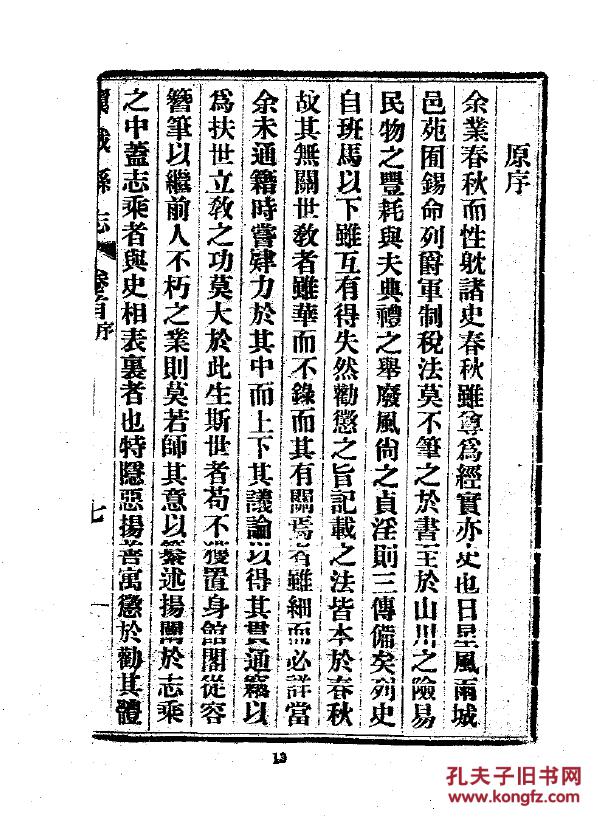 原序
余業春秋而性躭諸史春秋雖尊爲經實亦史也日星風雨城
邑苑囿錫命列爵軍制稅法莫不筆之於書至於山川之險易
民物之豐耗與夫典禮之舉廢風尙之貞淫則三傳備矣列史
自班馬以下雖互有得失然勸懲之旨記載之法皆本於春秋
故其無關世敎者雖華而不錄而其有關焉者雖細而必詳當
余未通籍時嘗肄力於其中而上下其議論以得其貫通竊以
爲扶世立敎之功莫大於此生斯世者苟不獲置身館閣從容
簪筆以繼前人不朽之業則莫若師其意以纂述揚闡於志乘
之中蓋志乘者與史相表裏者也特隱惡揚善寓懲於勸其體
縣志
卷首序
七
13
孔夫子旧书网
www.kongfz.com